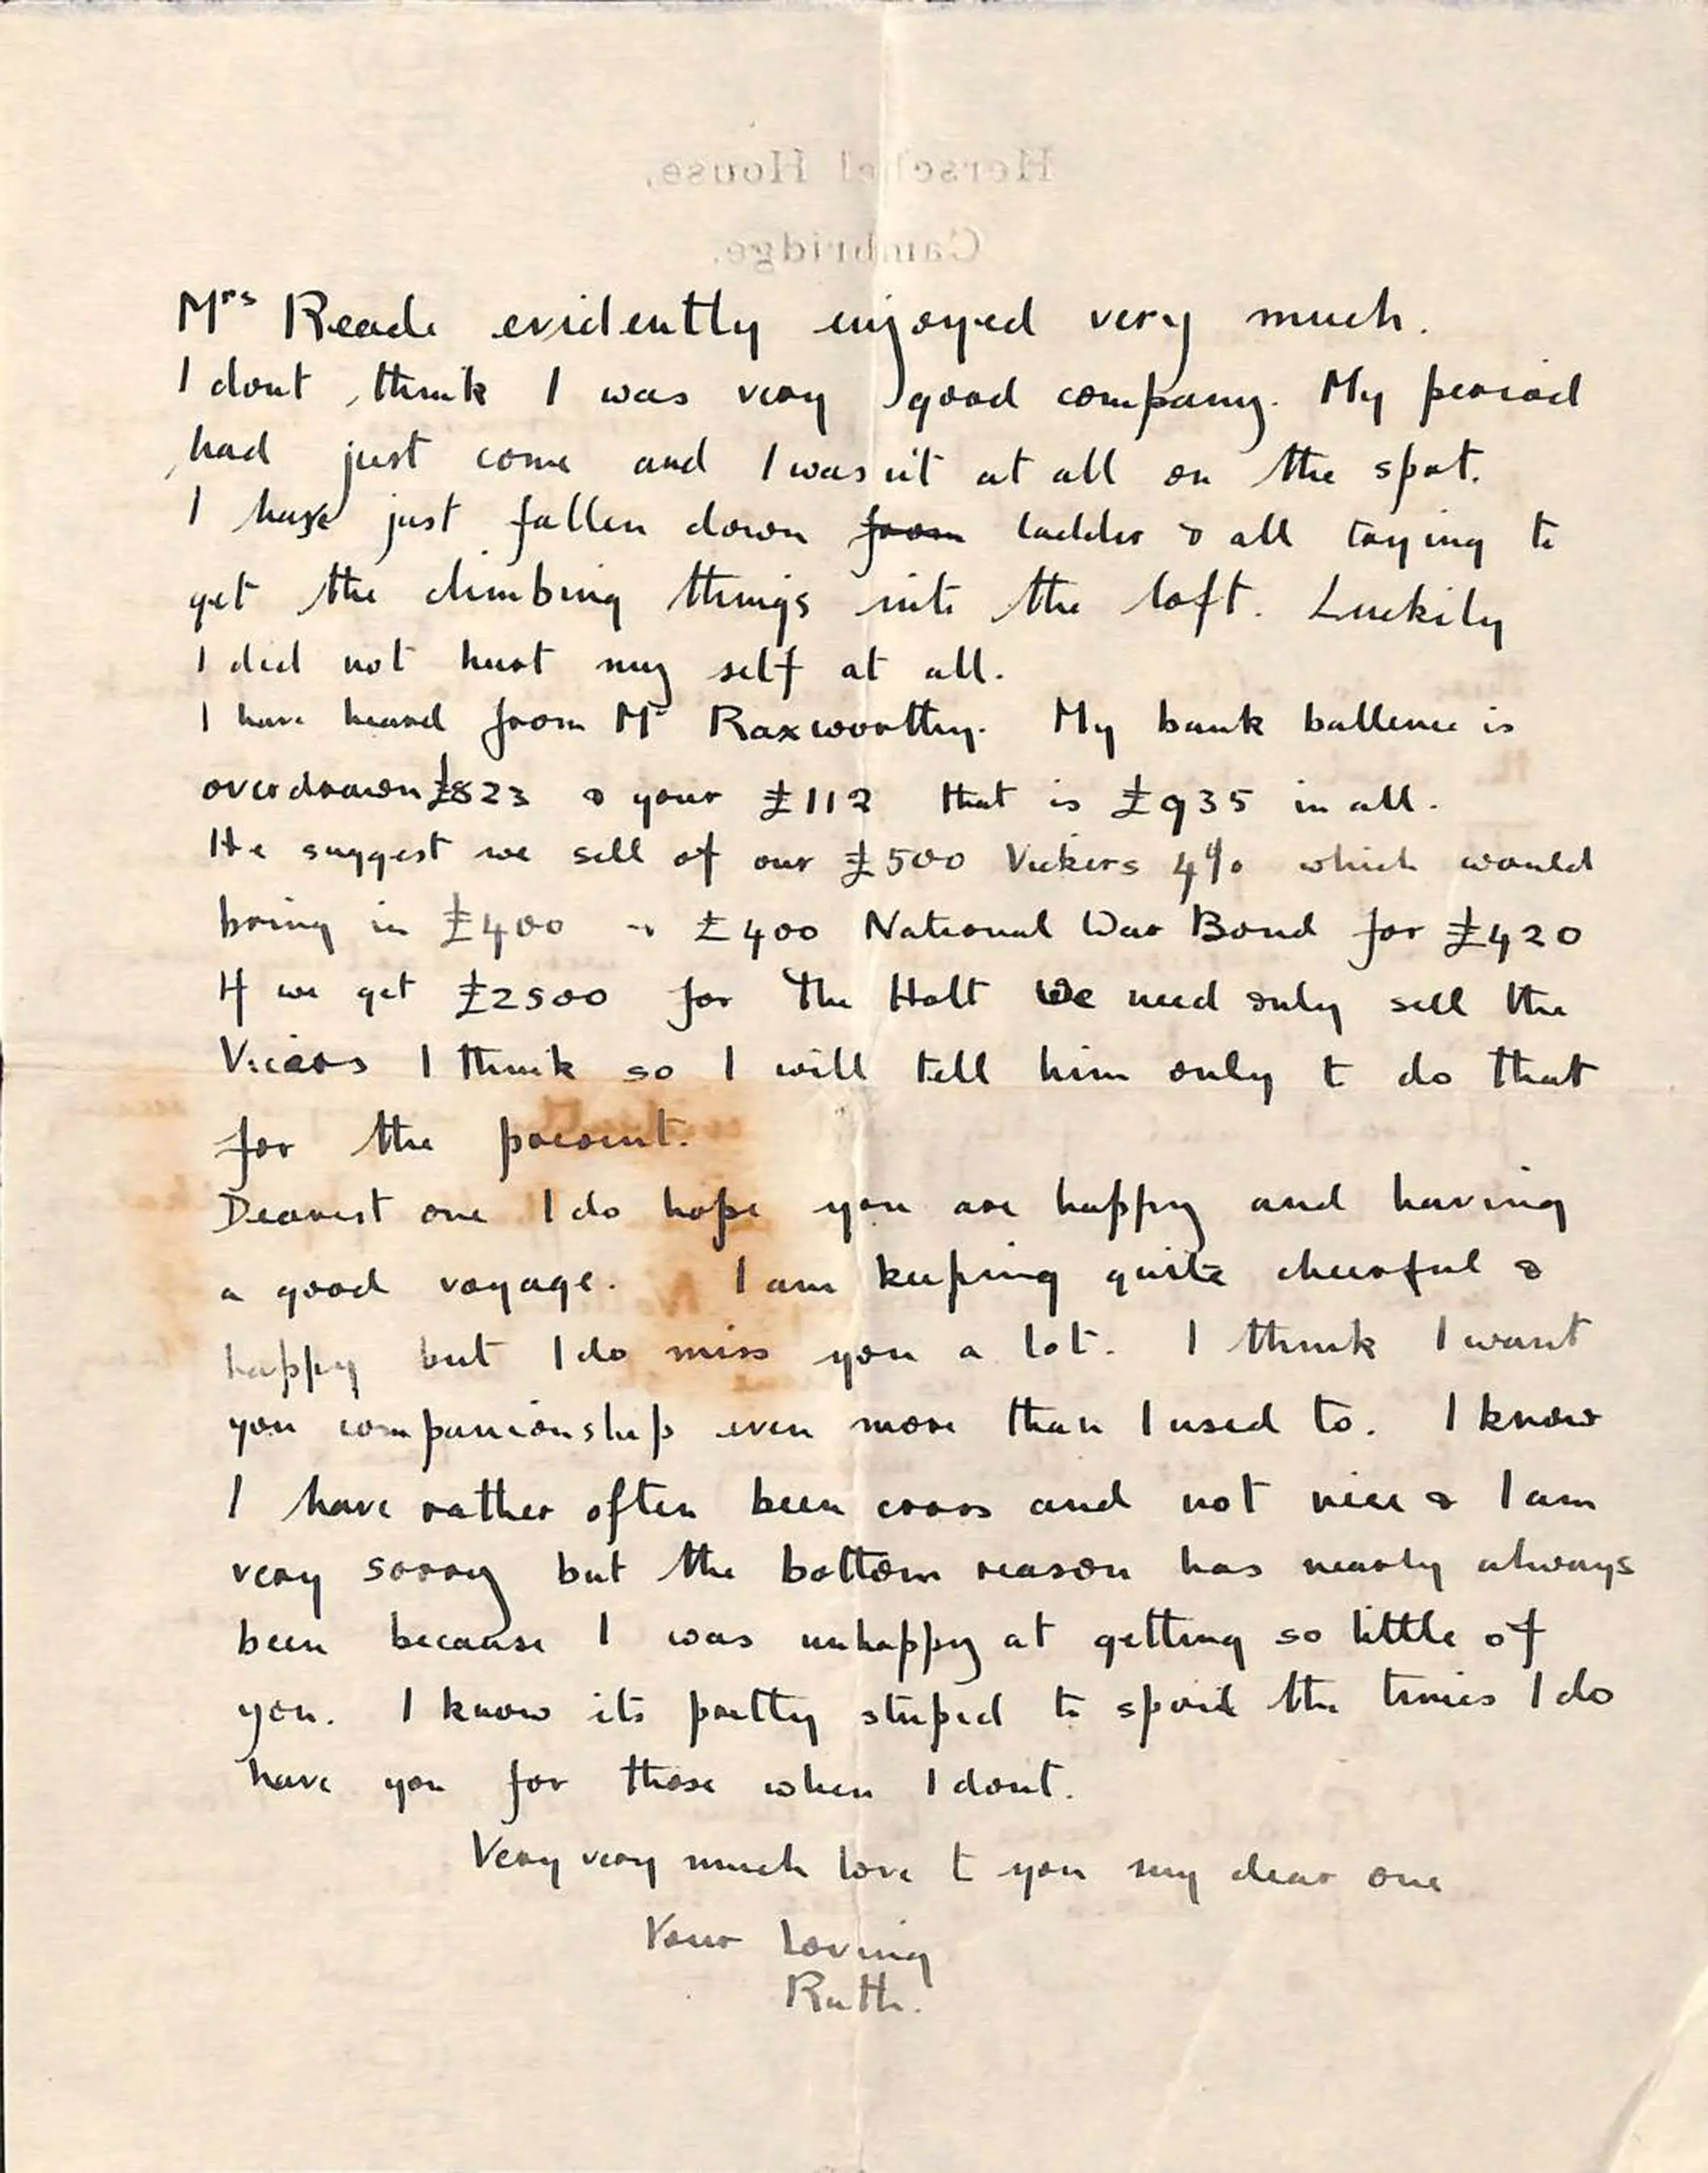 Herschel House,
Cambridge.
Mrs Reade evidently enjoyed very much.
I dont think I was very good company. My period
had just come and I wasn't at all on the spot.
I have just fallen down from ladder & all trying to
get the climbing things into the loft. Luckily
I did not hurt my self at all.
I have heard from Mr Raxworthy. My bank ballence is
overdrawn £823 & your £112 that is £935 in all.
He suggest we sell of our £500 Vickers 4% which would
bring in £400 & £400 National War Bond for £420
If we get £2500 for The Holt We need only sell the
Vicers I think so I will tell him only to do that
for the present.
Dearest one I do hope you are happy and having
a good voyage. I am keeping quite cheerful &
happy but I do miss you a lot. I think I want
you companionship even more than I used to. I know
I have rather often been cross and not nice & I am
very sorry but the bottom reason has nearly always
been because I was unhappy at getting so little of
you. I know its pretty stupid to spoil the times I do
have you for those when I dont.
Very very much love to you my dear one
Your Loving
Ruth.